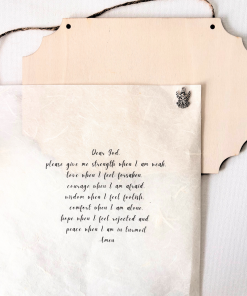 Dear God,
please give me strength when I am weak,
love when I feel forsaken,
courage when I am afraid
wisdom when I feel foolish,
comfort when I am alone,
hope when I feel rejected and
peace when I am in turmoil
Amen